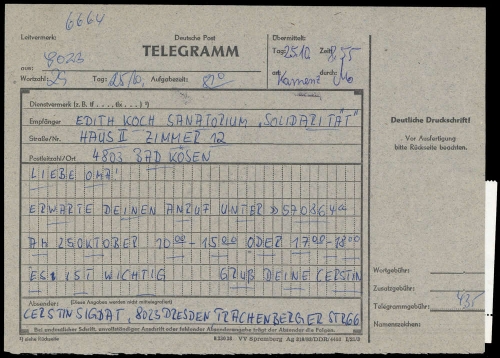 6664
Leitvermerk: Deutsche Post Übermittelt:
TELEGRAMM
Tag: 25.10. Zeit: 8.55
aus: 8023
ort: Kamenz durch:
Wortzahl: 29 Tag: 25/10. Aufgabezeit: 820
Dienstvermerk (z. B. tf . . ., tb . . .) ¹)
Empfänger EDITH KOCH SANATORIUM „SOLIDARITÄT“
Straße/Nr. HAUS II ZIMMER 12
Postleitzahl/Ort 4803 BAD KÖSEN
LIEBE OMA!
ERWARTE DEINEN ANRUF UNTER »570864«
AM 25OKTOBER 10⁰⁰-15⁰⁰ ODER 17⁰⁰-18⁰⁰
ES IST WICHTIG GRUß DEINE CERSTIN
Absender: (Diese Angaben werden nicht mittelegrafiert)
CERSTIN SIGDAT, 8023 DRESDEN TRACHENBERGER STR 66
Bei undeutlicher Schrift, unvollständiger Anschrift oder fehlender Absenderangabe trägt der Absender die Folgen.
¹) siehe Rückseite
VV Spremberg
Deutliche Druckschrift!
Vor Ausfertigung
bitte Rückseite beachten.
Wortgebühr:
Zusatzgebühr:
Telegrammgebühr: 435
Namenszeichen: